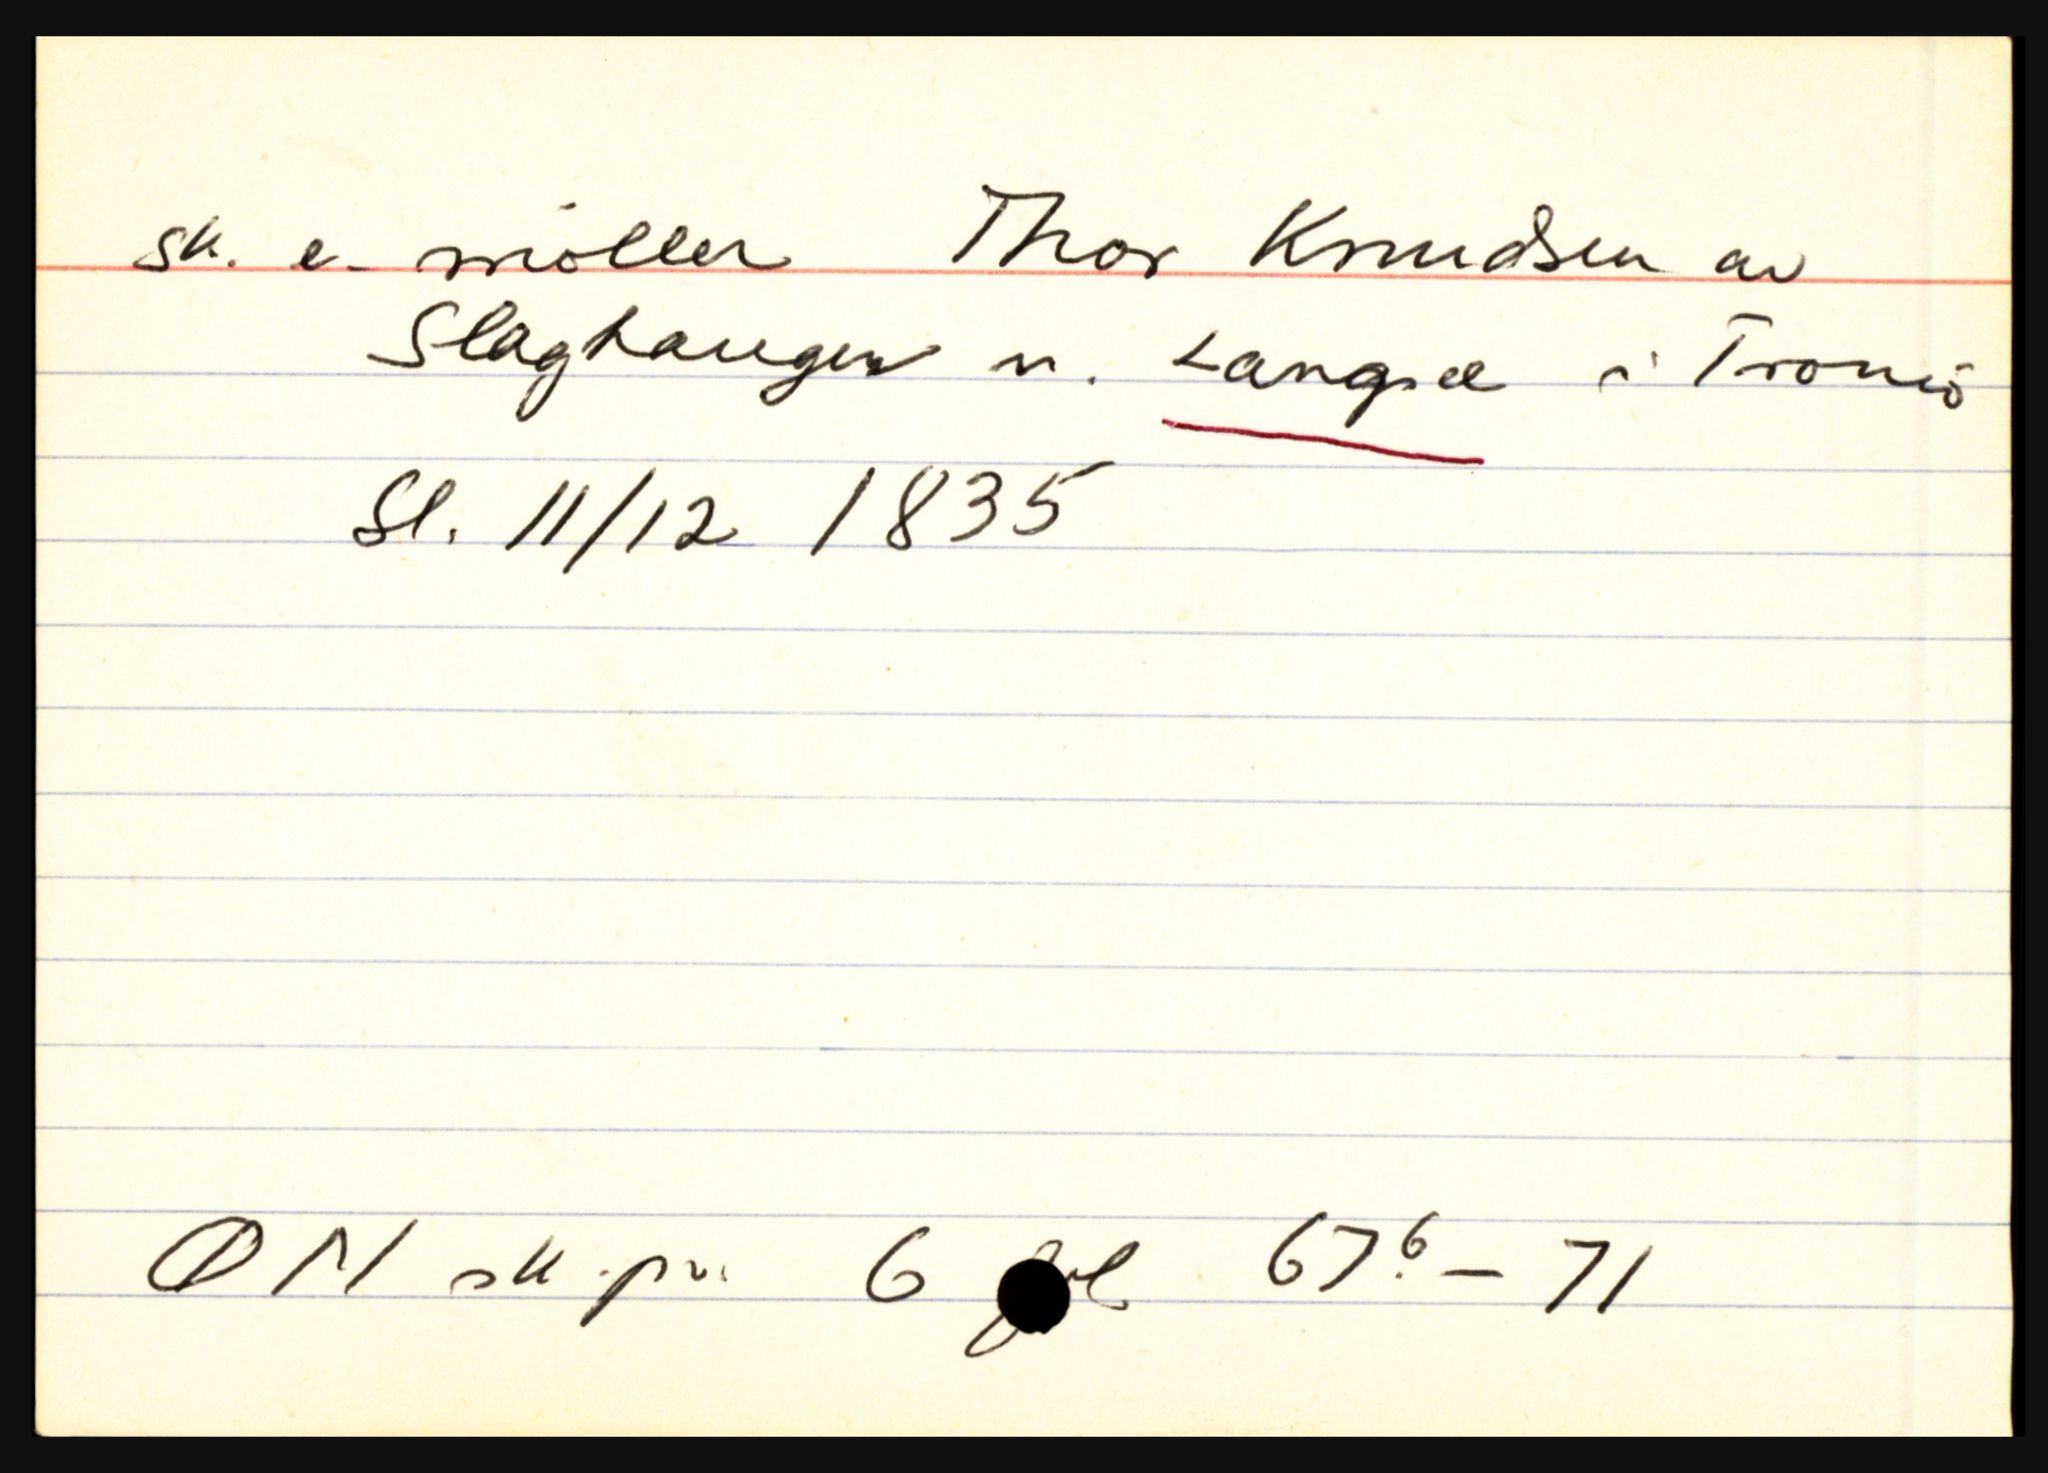 sk. e. möller Thor Knudsen av
Slaghaugen v. Langsæ i Tromö
Sl. 11/12 1835
ØN sk.pr. 6 fol 67.⁶ — 71